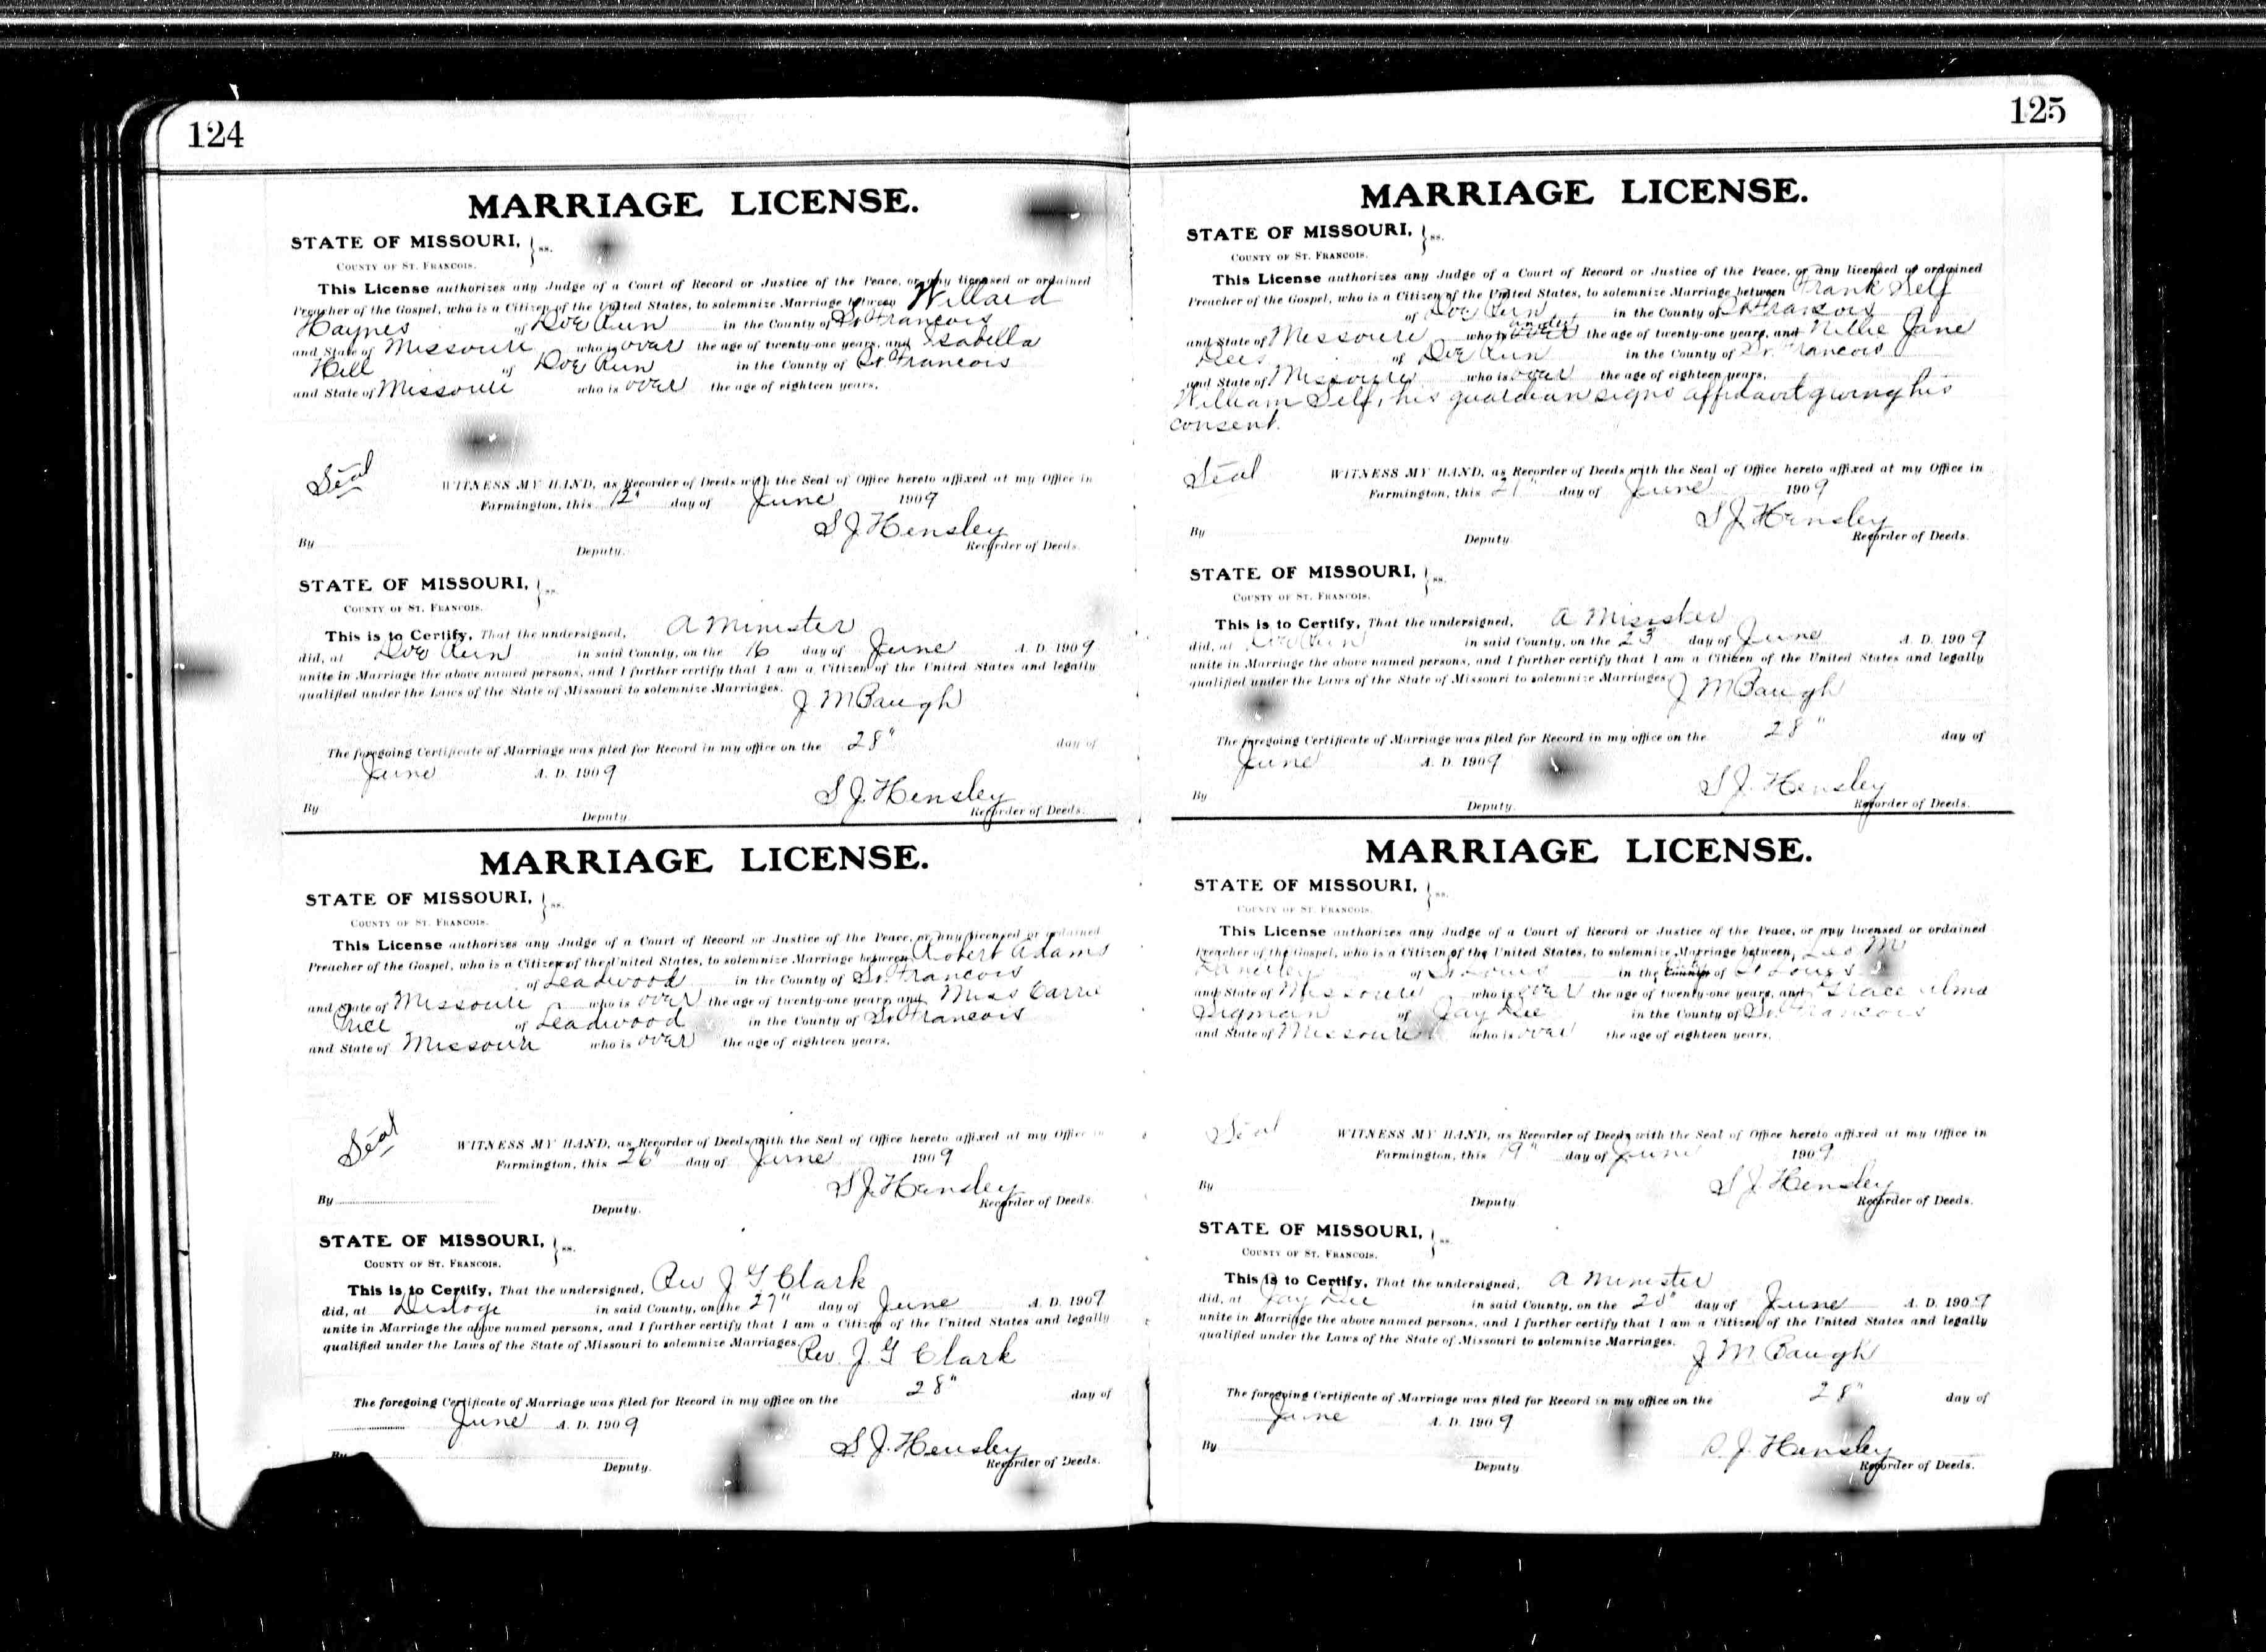 124
MARRIAGE LICENSE.
STATE OF MISSOURI, } ss.
COUNTY OF ST. FRANCOIS.
This License authorizes any Judge of a Court of Record or Justice of the Peace, or any licensed or ordained
Preacher of the Gospel, who is a Citizen of the United States, to solemnize Marriage between Willard
Haynes of Doe Run in the County of St. Francois
and State of Missouri who is over the age of twenty-one years, and Isabella
Hill of Doe Run in the County of St. Francois
and State of Missouri who is over the age of eighteen years.
Seal
WITNESS MY HAND, as Recorder of Deeds with the Seal of Office hereto affixed at my Office in
Farmington, this 12" day of June 1909
S J Hensley
By Deputy. Recorder of Deeds.
STATE OF MISSOURI, } ss.
COUNTY OF ST. FRANCOIS.
This is to Certify, That the undersigned, A Minister
did, at Doe Run in said County, on the 16 day of June A. D. 1909
unite in Marriage the above named persons, and I further certify that I am a Citizen of the United States and legally
qualified under the Laws of the State of Missouri to solemnize Marriages.
J M Baugh
The foregoing Certificate of Marriage was filed for Record in my office on the 28" day of
June A. D. 1909
S J Hensley
By Deputy. Recorder of Deeds.
MARRIAGE LICENSE.
STATE OF MISSOURI, } ss.
COUNTY OF ST. FRANCOIS.
This License authorizes any Judge of a Court of Record or Justice of the Peace, or any licensed or ordained
Preacher of the Gospel, who is a Citizen of the United States, to solemnize Marriage between Robert Adams
of Leadwood in the County of St. Francois
and State of Missouri who is over the age of twenty-one years, and Miss Carrie
Price of Leadwood in the County of St. Francois
and State of Missouri who is over the age of eighteen years.
Seal
WITNESS MY HAND, as Recorder of Deeds with the Seal of Office hereto affixed at my Office in
Farmington, this 26" day of June 1909
S J Hensley
By Deputy. Recorder of Deeds.
STATE OF MISSOURI, } ss.
COUNTY OF ST. FRANCOIS.
This is to Certify, That the undersigned, Rev J G Clark
did, at Desloge in said County, on the 27" day of June A. D. 1909
unite in Marriage the above named persons, and I further certify that I am a Citizen of the United States and legally
qualified under the Laws of the State of Missouri to solemnize Marriages.
Rev. J. G Clark
The foregoing Certificate of Marriage was filed for Record in my office on the 28" day of
June A. D. 1909
S. J. Hensley
By Deputy. Recorder of Deeds.
125
MARRIAGE LICENSE.
STATE OF MISSOURI, } ss.
COUNTY OF ST. FRANCOIS.
This License authorizes any Judge of a Court of Record or Justice of the Peace, or any licensed or ordained
Preacher of the Gospel, who is a Citizen of the United States, to solemnize Marriage between Frank Self
of Doe Run in the County of St. Francois
and State of Missouri who is under the age of twenty-one years, and Nillie Jane
Dees of Doe Run in the County of St. Francois
and State of Missouri who is over the age of eighteen years.
William Self, his guardian signs affidavit giving his
consent.
Seal
WITNESS MY HAND, as Recorder of Deeds with the Seal of Office hereto affixed at my Office in
Farmington, this 21" day of June 1909
S J Hensley
By Deputy Recorder of Deeds.
STATE OF MISSOURI, } ss.
COUNTY OF ST. FRANCOIS.
This is to Certify, That the undersigned, A Minister
did, at Doe Run in said County, on the 23" day of June A. D. 1909
unite in Marriage the above named persons, and I further certify that I am a Citizen of the United States and legally
qualified under the Laws of the State of Missouri to solemnize Marriages.
J M Baugh
The foregoing Certificate of Marriage was filed for Record in my office on the 28" day of
June A. D. 1909
S J Hensley
By Deputy. Recorder of Deeds.
MARRIAGE LICENSE.
STATE OF MISSOURI, } ss.
COUNTY OF ST. FRANCOIS.
This License authorizes any Judge of a Court of Record or Justice of the Peace, or any licensed or ordained
Preacher of the Gospel, who is a Citizen of the United States, to solemnize Marriage between Leo M
of St Louis in the County of St Louis
and State of Missouri who is over the age of twenty-one years, and Grace Alma
Sigman of Jay Dee in the County of St. Francois
and State of Missouri who is over the age of eighteen years.
Seal
WITNESS MY HAND, as Recorder of Deeds with the Seal of Office hereto affixed at my Office in
Farmington, this 19" day of June 1909
S J Hensley
By Deputy Recorder of Deeds.
STATE OF MISSOURI, } ss.
COUNTY OF ST. FRANCOIS.
This is to Certify, That the undersigned, A Minister
did, at Jay Dee in said County, on the 20" day of June A. D. 1909
unite in Marriage the above named persons, and I further certify that I am a Citizen of the United States and legally
qualified under the Laws of the State of Missouri to solemnize Marriages.
J M Baugh
The foregoing Certificate of Marriage was filed for Record in my office on the 28" day of
June A. D. 1909
S. J. Hensley
By Deputy Recorder of Deeds.